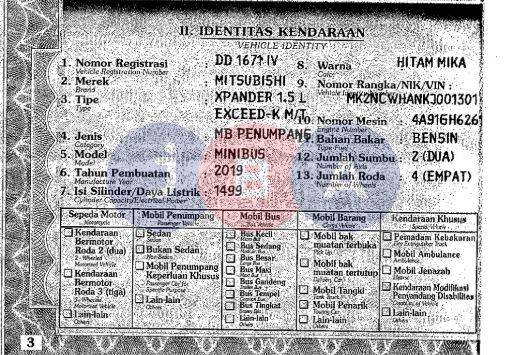 II. IDENTITAS KENDARAAN
VEHICLE IDENTITY
1. Nomor Registrasi : DD 1671 IV
Vehicle Registration Number
2. Merek : MITSUBISHI
Brand
3. Tipe : XPANDER 1.5 L
Type
EXCEED-K M/T
4. Jenis : MB PENUMPANG
Category
5. Model : MINIBUS
Model
6. Tahun Pembuatan : 2019
Manufacture Year
7. Isi Silinder/Daya Listrik : 1499
Cylinder Capacity/Electrical Power
8. Warna : HITAM MIKA
Color
9. Nomor Rangka/NIK/VIN :
MK2NCWHANKJ001301
10. Nomor Mesin : 4A91GH626
Engine Number
11. Bahan Bakar : BENSIN
Type Fuel
12. Jumlah Sumbu : 2 (DUA)
Number of Axis
13. Jumlah Roda : 4 (EMPAT)
Number of Wheels
Sepeda Motor
Motorcycle
Kendaraan
Bermotor
Roda 2 (dua)
2 - Wheeled
Motorized Vehicle
Kendaraan
Bermotor
Roda 3 (tiga)
3 - Wheeled
Motorized Vehicle
Lain-lain
Others
Mobil Penumpang
Passenger Vehicle
Sedan
Sedan
Bukan Sedan
Non-Sedan
Mobil Penumpang
Keperluan Khusus
Passenger Car for
Lain-lain
Others
Mobil Bus
Bus Vehicle
Bus Kecil
Bus Sedang
Bus Besar
Bus Maxi
Bus Gandeng
Bus Tempel
Bus Tingkat
Lain-lain
Others
Mobil Barang
Cargo Vehicle
Mobil bak
muatan terbuka
Pick Up
Mobil bak
muatan tertutup
Mobil Tangki
Mobil Penarik
Towing Car
Lain-lain
Others
Kendaraan Khusus
Special Vehicle
Pemadam Kebakaran
Fire Extinguisher Truck
Mobil Ambulance
Ambulance
Mobil Jenazah
Hearse
Kendaraan Modifikasi
Penyandang Disabilitas
Lain-lain
Others
3